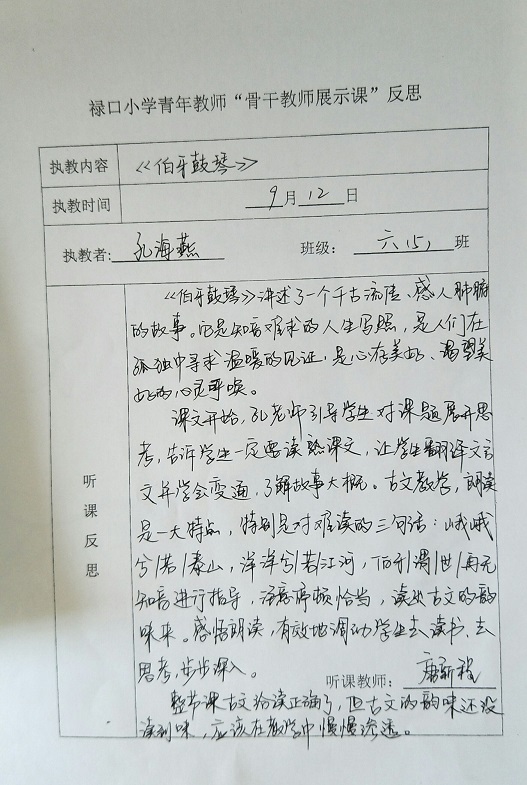 禄口小学青年教师“骨干教师展示课”反思
执教内容 《伯牙鼓琴》
执教时间 9月12日
执教者: 孔海燕 班级: 六(5)班
听课反思
《伯牙鼓琴》讲述了一个千古流传、感人肺腑
的故事。它是知音难求的人生写照，是人们在
孤独中寻求温暖的见证，是心存美好、渴望美
好的心灵呼唤。
课文开始，孔老师引导学生对课题展开思
考，告诉学生一定要读熟课文，让学生翻译文言
文并学会变通，了解故事大概。古文教学，朗读
是一大特点，特别是对难读的三句话：峨峨
兮/若/泰山，洋洋兮/若/江河，伯牙/谓/世/再无
知音进行指导，注意停顿恰当，读出古文的韵
味来。感悟朗读，有效地调动学生去读书、去
思考，步步深入。
听课教师:
整节课古文给读正确了，但古文的韵味还没
读到味，应该在教学中慢慢渗透。